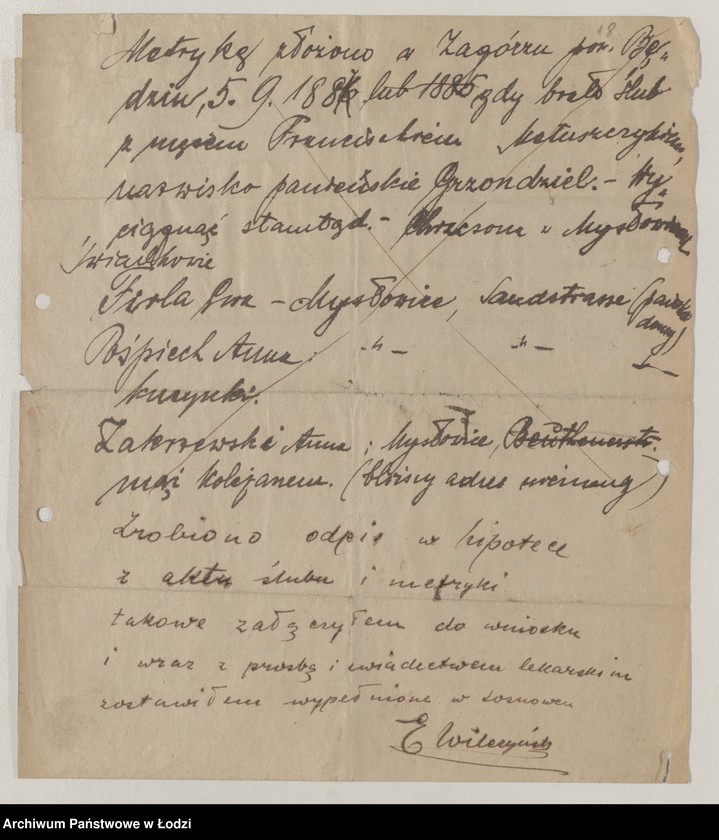 18
Metrykę złożono w Zagórzu pow. Bę-
dzin, 5. 9. 1884 lub 1885 gdy brała ślub
z mężem Franciszkiem Matuszczykiem,
nazwisko panieńskie Grzondziel. - Wy-
ciągnąć stamtąd. - w Mysłowicach
Świadkowie
Ewa - Mysłowice, Sandstrasse
Pośpiech Anna: -"- -"-
kuzynki.
Zakrzewski Anna; Mysłowice, Beuthenerstr.
mąż kolejarzem. (bliższy adres nieznany)
Zrobiono odpis w hipotece
z aktu ślubu i metryki
takowe załączyłem do wniosku
i wraz z prośbą i świadectwem lekarskim
zostawiłem wypełnione w Sosnowcu
E Wilczyński
Archiwum Państwowe w Łodzi